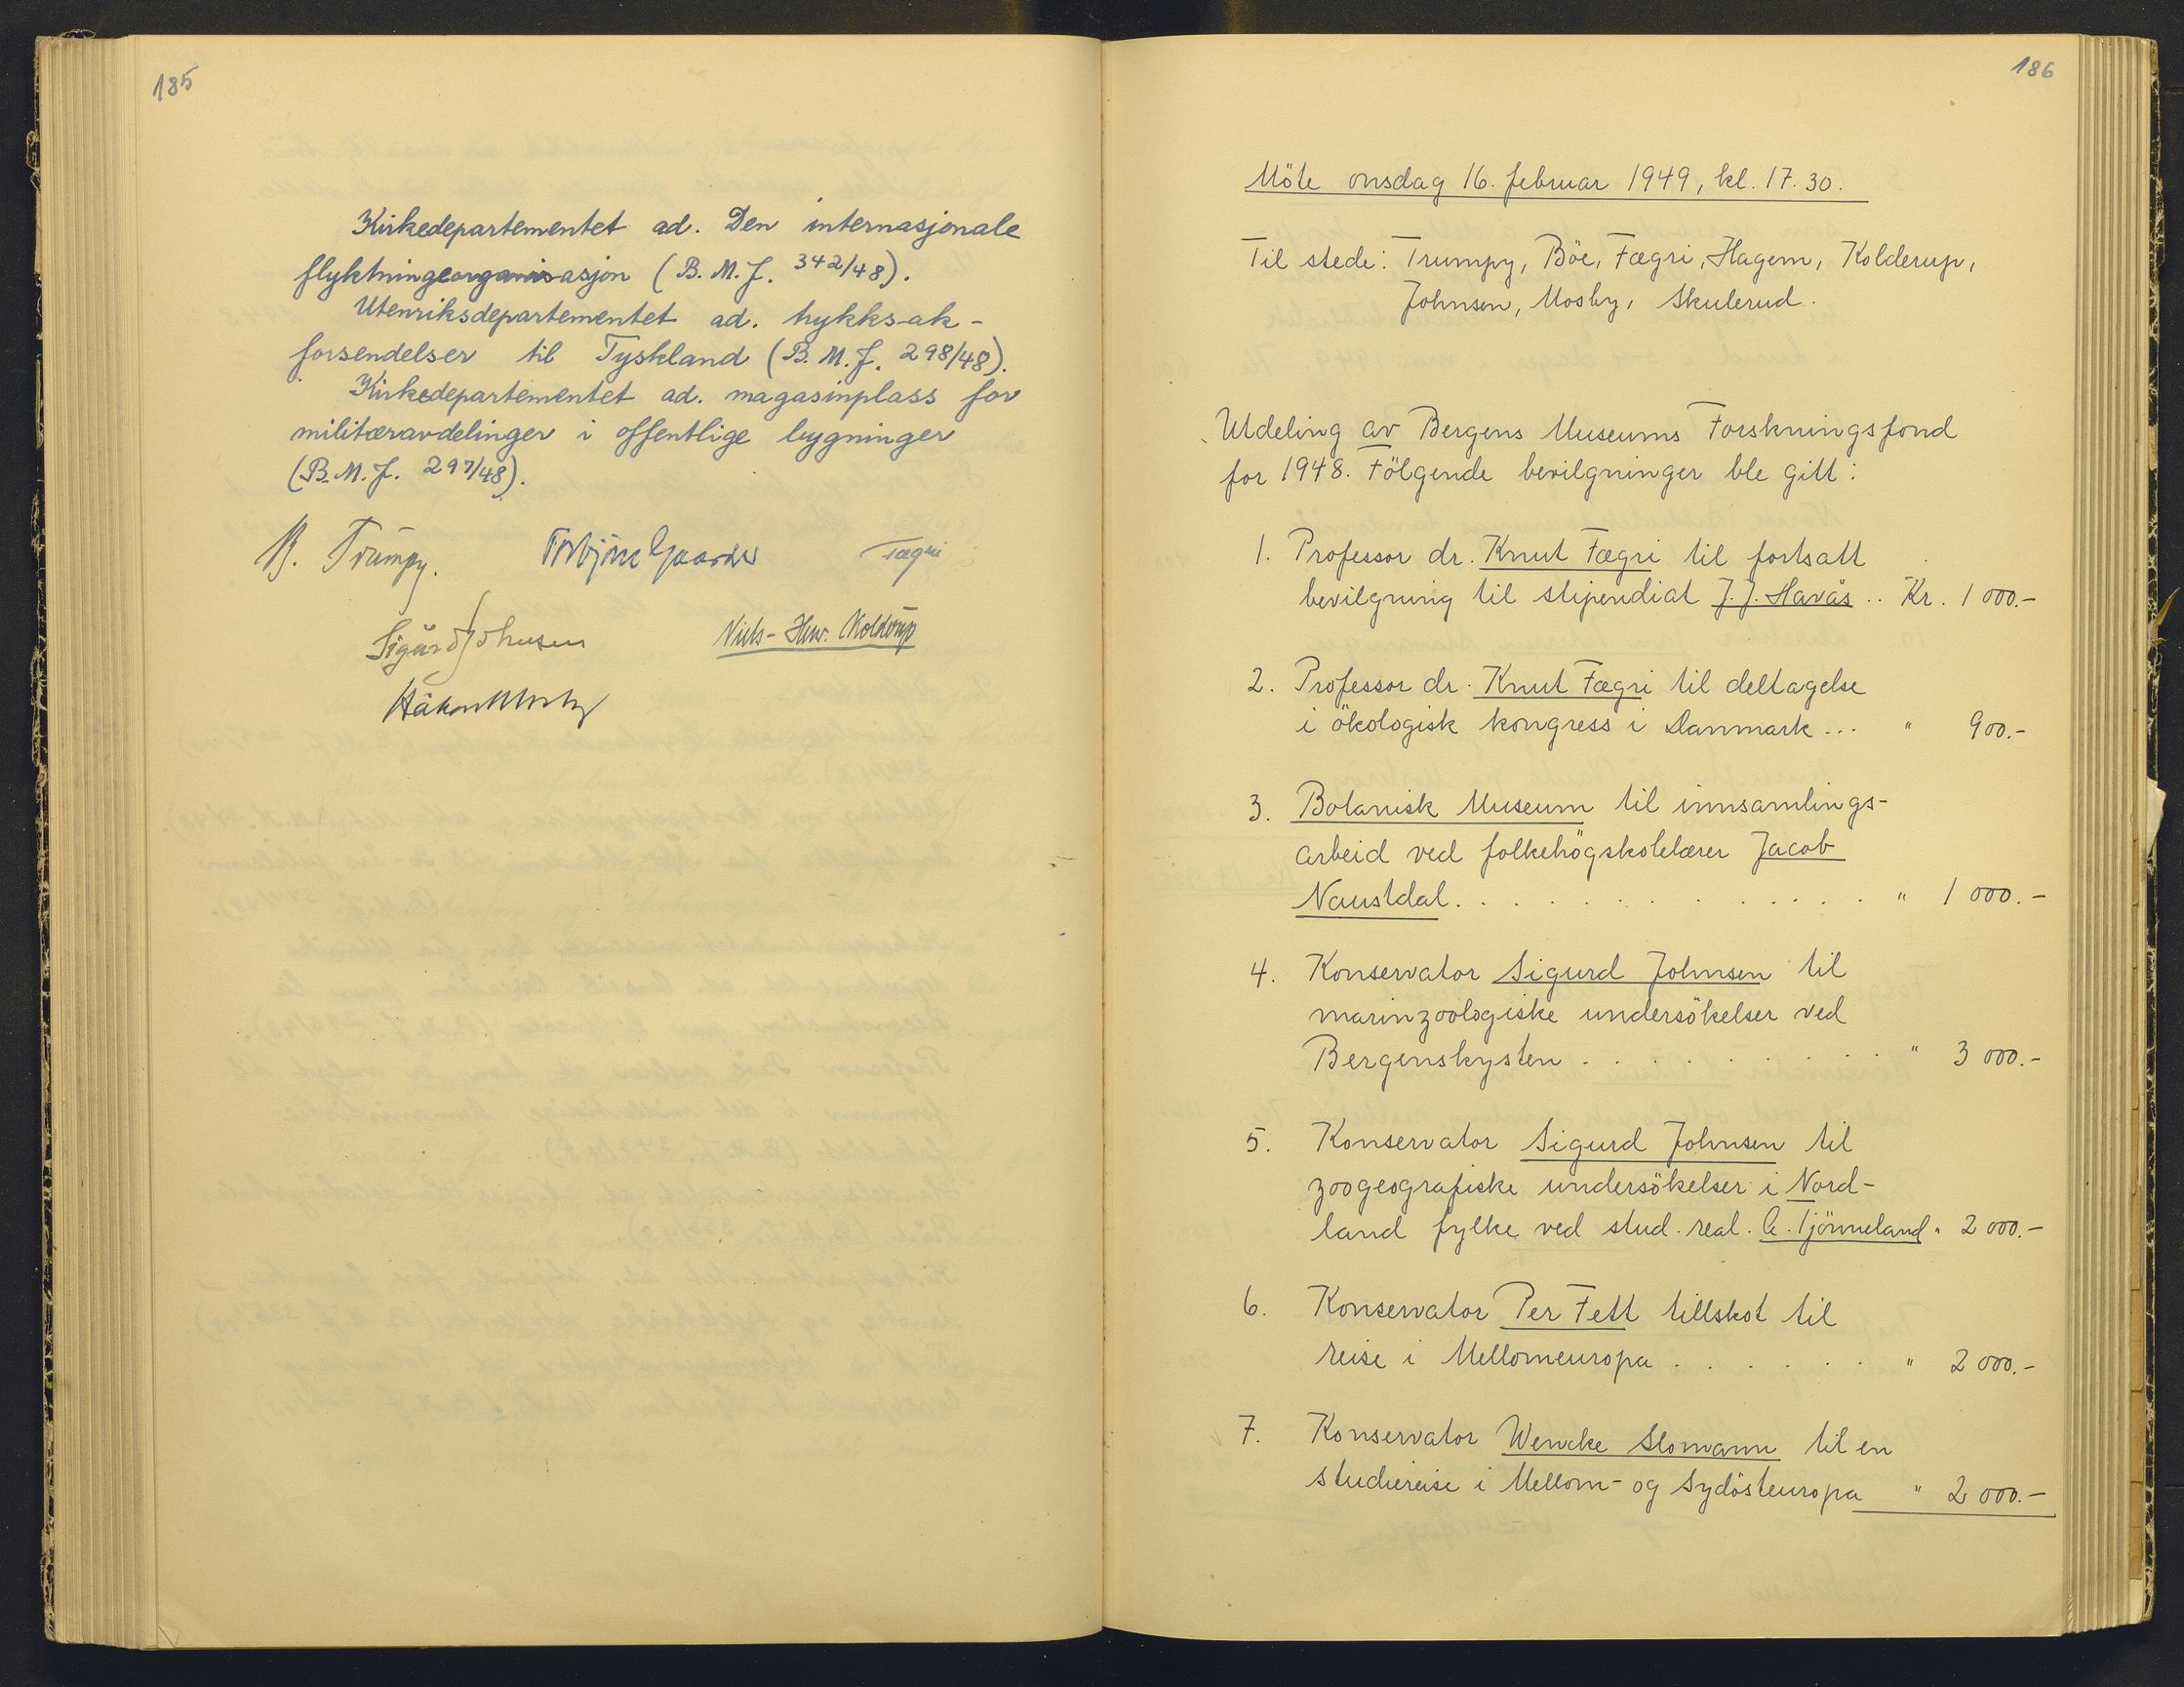 185
Kirkedepartementet ad. Den internasjonale
flyktningeorganisasjon (B. M. J. 342/48).
Utenriksdepartementet ad. trykks-ak-
forsendelser til Tyskland (B. M. J. 298/48).
Kirkedepartementet ad. magasinplass for
militæravdelinger i offentlige bygninger
(B. M. J. 297/48).
B. Trumpy. Torbjörn Gaarder Fægri
Sigurd Johnsen Niels-Henr. Kolderup
Håkon Mosby
186
Möte onsdag 16. februar 1949, kl. 17.30.
Til stede: Trumpy, Böe, Fægri, Hagem, Kolderup,
Johnsen, Mosby, Skulerud.
Utdeling av Bergens Museums Forskningsfond
for 1948. Fölgende bevilgninger ble gitt:
1. Professor dr. Knut Fægri til fortsatt
bevilgning til stipendiat J. J. Havås .. Kr. 1 000.-
2. Professor dr. Knut Fægri til deltagelse
i ökologisk kongress i Danmark ... " 900.-
3. Botanisk Museum til innsamlings-
arbeid ved folkehögskolelærer Jacob
Naustdal. . . . . . . . . . . . . " 1 000.-
4. Konservator Sigurd Johnsen til
marinzoologiske undersökelser ved
Bergenskysten . . . . . . . . . . " 3 000.-
5. Konservator Sigurd Johnsen til
zoogeografiske undersökelser i Nord-
land fylke ved stud. real. A. Tjönneland " 2 000.-
6. Konservator Per Fett tillskot til
reise i Mellomeuropa . . . . . . " 2 000.-
7. Konservator Wencke Slomann til en
studiereise i Mellom- og Sydösteuropa " 2 000.-